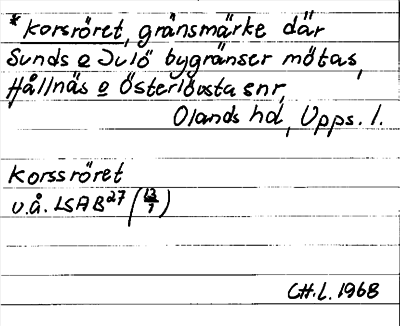 *Korsröret, gränsmärke där
Sunds o Julö bygränser mötas,
Hållnäs o Österlövsta snr,
Olands hd, Upps. l.
Korssröret
u.å. LSA B27 (13/7)
CH.L. 1968